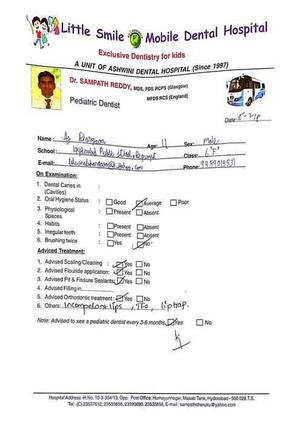 Little Smile Mobile Dental Hospital
Exclusive Dentistry for kids
A UNIT OF ASHWINI DENTAL HOSPITAL (Since 1997)
Dr. SAMPATH REDDY, MDS, FDS RCPS (Glasgow)
MFDS RCS (England)
Pediatric Dentist
Date:
Name: Age: 11 Sex: Male
School: Public School, Begumpet Class: 6 'F'
E-mail: Phone:
On Examination:
1. Dental Caries in (Cavities)
2. Oral Hygiene Status : Good Average Poor
3. Physiological Spaces : Present Absent
4. Habits : Present Absent
5. Irregular teeth : Present Absent
6. Brushing twice : Yes No
Adviced Treatment:
1. Advised Scaling/Cleaning : Yes No
2. Advised Flouride application: Yes No
3. Advised Pit & Fissure Sealants: Yes No
4. Advised Filling in
5. Advised Orthodontic treatment : Yes No
6. Others: Incompetent lips, lip trap.
Note: Advised to see a pediatric dentist every 3-6 months, Yes No
Hospital Address: H.No. 10-3-304/13, Opp. Post Office, Humayunnagar, Masab Tank, Hyderabad - 500 028 T.S.